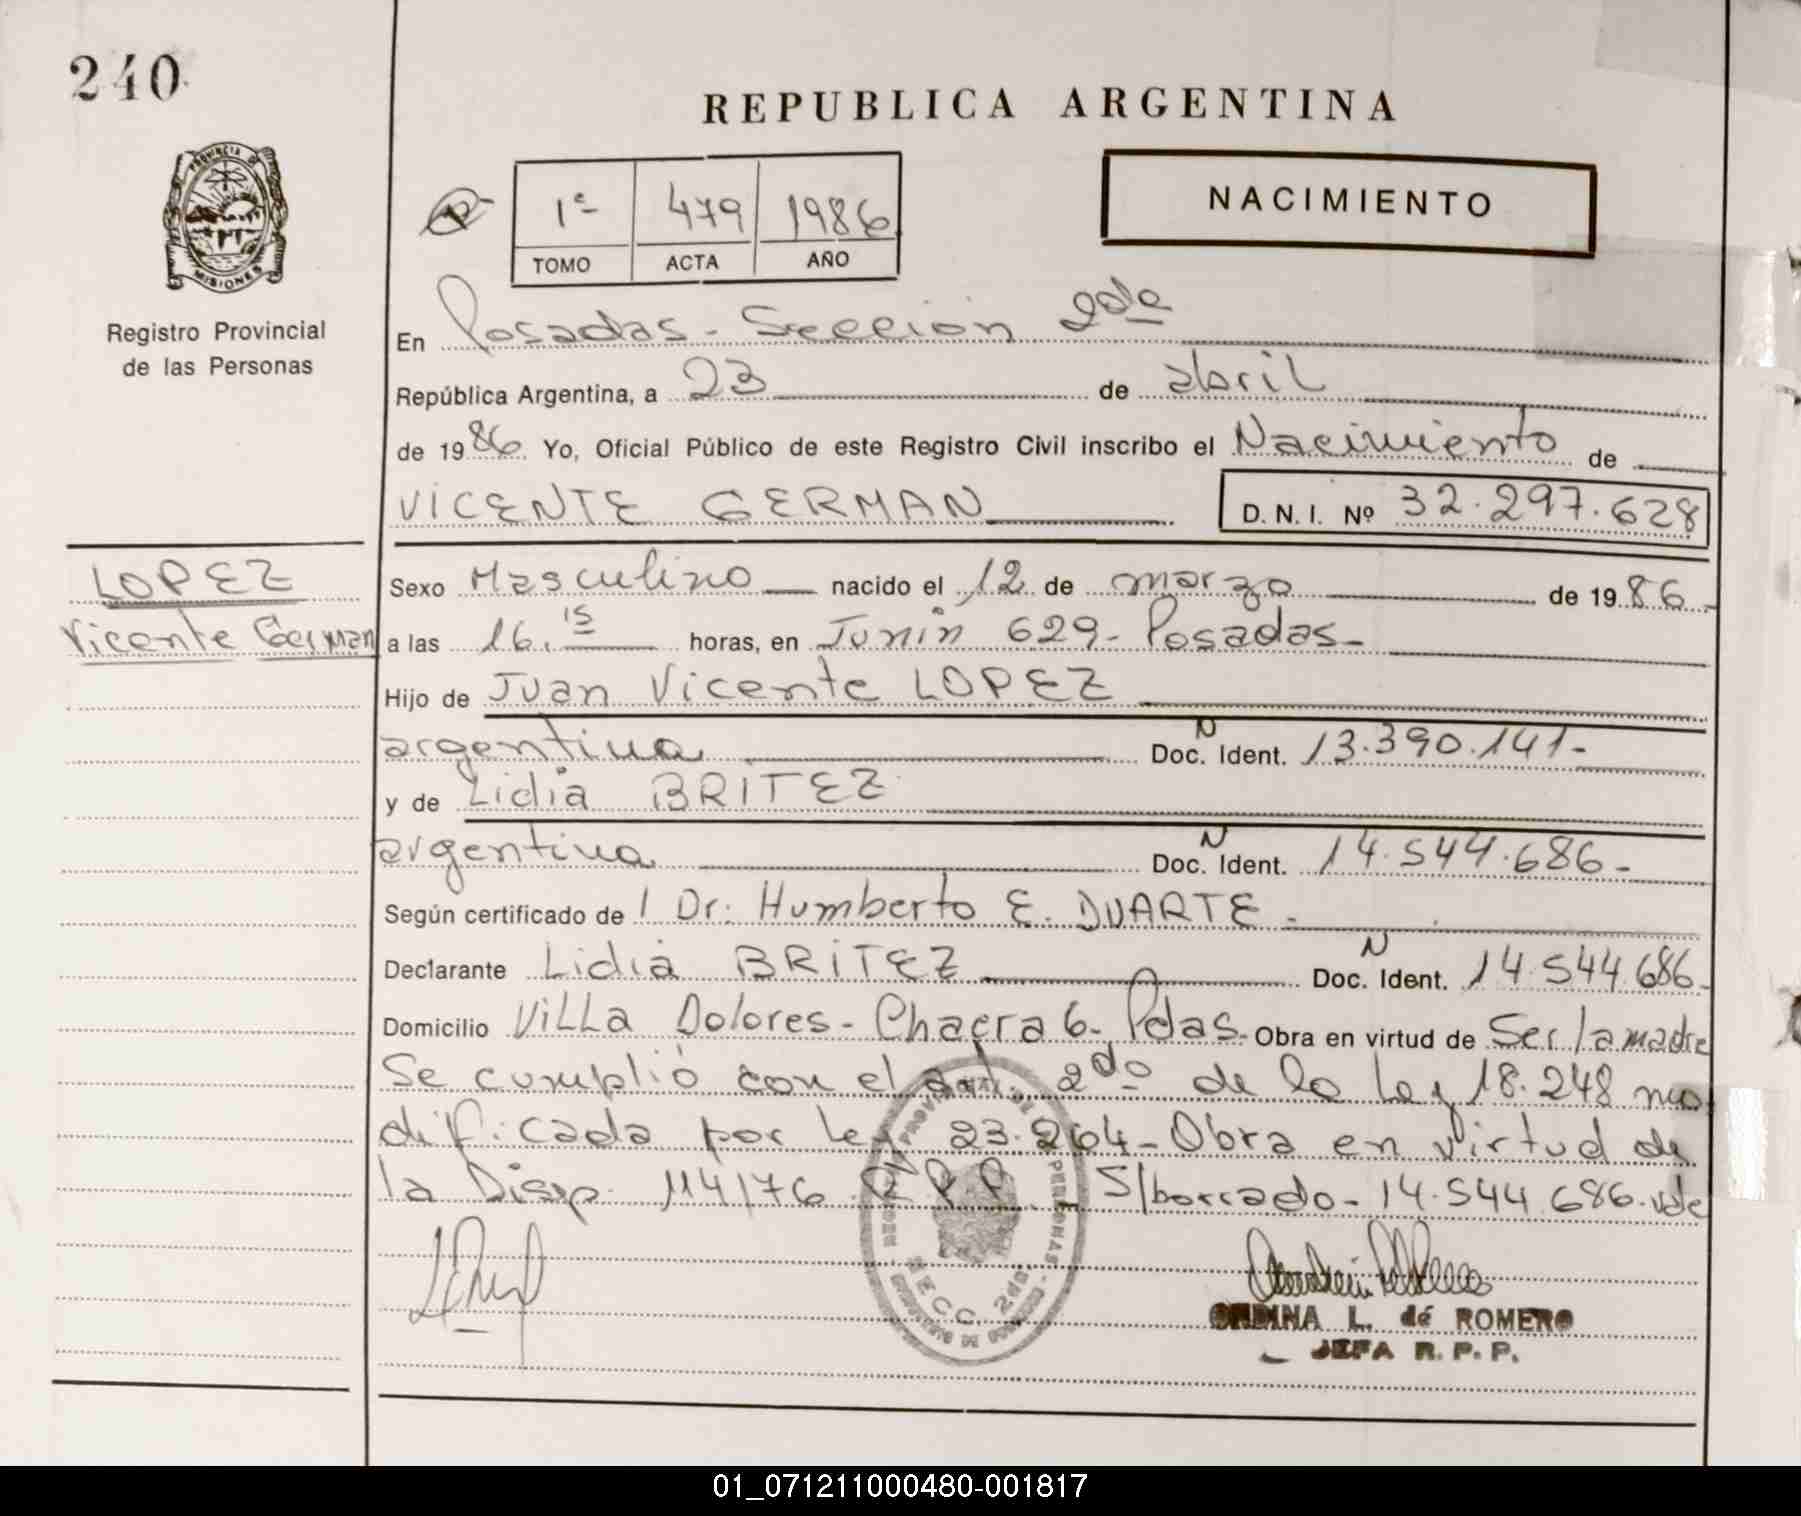 240
REPUBLICA ARGENTINA
PROVINCIA DE
MISIONES
Registro Provincial
de las Personas
1º 479 1986
TOMO ACTA AÑO
NACIMIENTO
En Posadas - Seccion 2da
República Argentina, a 23 de abril
de 1986 Yo, Oficial Público de este Registro Civil inscribo el Nacimiento de
VICENTE GERMAN D. N. I. Nº 32.297.628
LOPEZ
Vicente German
Sexo Masculino nacido el 12 de marzo de 1986
a las 16.15 horas, en Junin 629 - Posadas -
Hijo de Juan Vicente LOPEZ
argentina Doc. N Ident. 13.390.141 -
y de Lidia BRITEZ
argentina Doc. N Ident. 14.544.686 -
Según certificado de l Dr. Humberto E. DUARTE -
Declarante Lidia BRITEZ Doc. N Ident. 14.544.686 -
Domicilio Villa Dolores - Chacra 6 - Pdas - Obra en virtud de Ser la madre
Se cumplió con el art. 2do de la Ley 18.248 mo
dificada por Ley 23.264 - Obra en virtud de
la Disp. 114/76 R P P. S/borrado - 14.544.686 - vale
ONDINA L. de ROMERO
JEFA R. P. P.
01_071211000480-001817